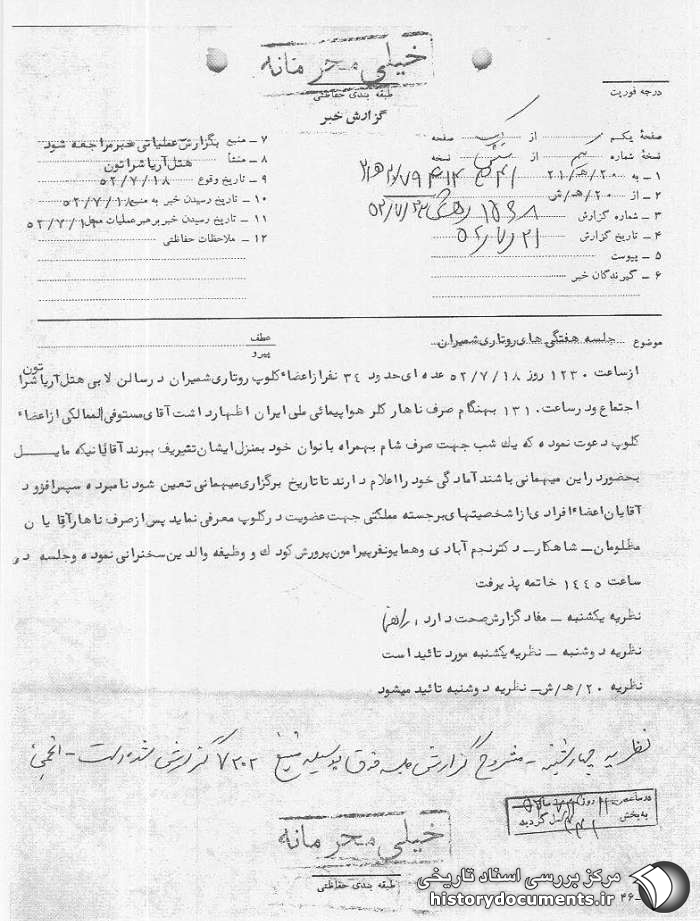 خیلی محرمانه
طبقه بندی حفاظتی
درجه فوریت
گزارش خبر
صفحهٔ یکم از یک صفحه
نسخهٔ شماره از نسخه
۱ – به ۲۰/هـ/۲۱
۲ – از ۲۰/هـ/ش
۳ – شماره گزارش
۴ – تاریخ گزارش ۵۲/۷/۲۱
۵ – پیوست
۶ – گیرندگان خبر
۷ – منبع بگزارش عملیاتی مخبر مراجعه شود
۸ – منشأ هتل آریا شراتون
۹ – تاریخ وقوع ۵۲/۷/۱۸
۱۰ – تاریخ رسیدن خبر به منبع ۵۲/۷/۱۸
۱۱ – تاریخ رسیدن خبر برهبر عملیات محل
۱۲ – ملاحظات حفاظتی
موضوع جلسه هفتگی های روتاری شمیران
عطف
پیرو
ازساعت ۱۲۳۰ روز ۵۲/۷/۱۸ عده ای حدود ۳۴ نفرازاعضاء کلوپ روتاری شمیران درسالن لابی هتل آریا شراتون
اجتماع ودرساعت ۱۳۱۰ بهنگام صرف ناهار کلر هواپیمائی ملی ایران اظهارداشت آقای مستوفی الممالکی ازاعضاء
کلوپ دعوت نموده که یک شب جهت صرف شام بهمراه بانوان خود بمنزل ایشان تشریف ببرند آقایانیکه مایــل
بحضوردراین میهمانی باشند آمادگی خودرااعلام دارند تاتاریخ برگزاری میهمانی تعیین شود نامبرده سپس افزود
آقایان اعضاء افرادی ازشخصیتهای برجسته مملکتی جهت عضویت درکلوپ معرفی نماید پس ازصرف ناهارآقایان
مظلومان – شاهکار – دکترنجم آبادی وهمایونفرپیرامون پرورش کودک و وظیفه والدین سخنرانی نموده وجلسه در
ساعت ۱۴۴۵ خاتمه پذیرفت
نظریه یکشنبه – مفاد گزارش صحت دارد.
نظریه دوشنبه – نظریه یکشنبه مورد تائید است
نظریه ۲۰/هـ/ش– نظریه دوشنبه تائید میشود
نظریه چهارشنبه – مشروح گزارش جلسه فوق بوسیله منبع ۷۲۰۲ گزارش شده است –
درساعت روز
به بخش ارسال گردید
خیلی محرمانه
طبقه بندی حفاظتی
۴۶
مرکز بررسی اسناد تاریخی
historydocuments.ir